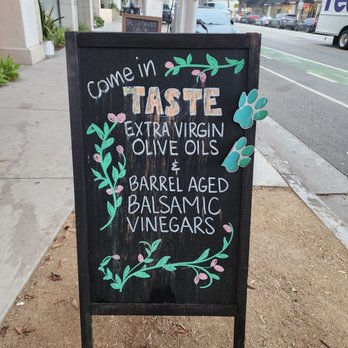 Come in
TASTE
EXTRA VIRGIN
OLIVE OILS
&
BARREL AGED
BALSAMIC
VINEGARS